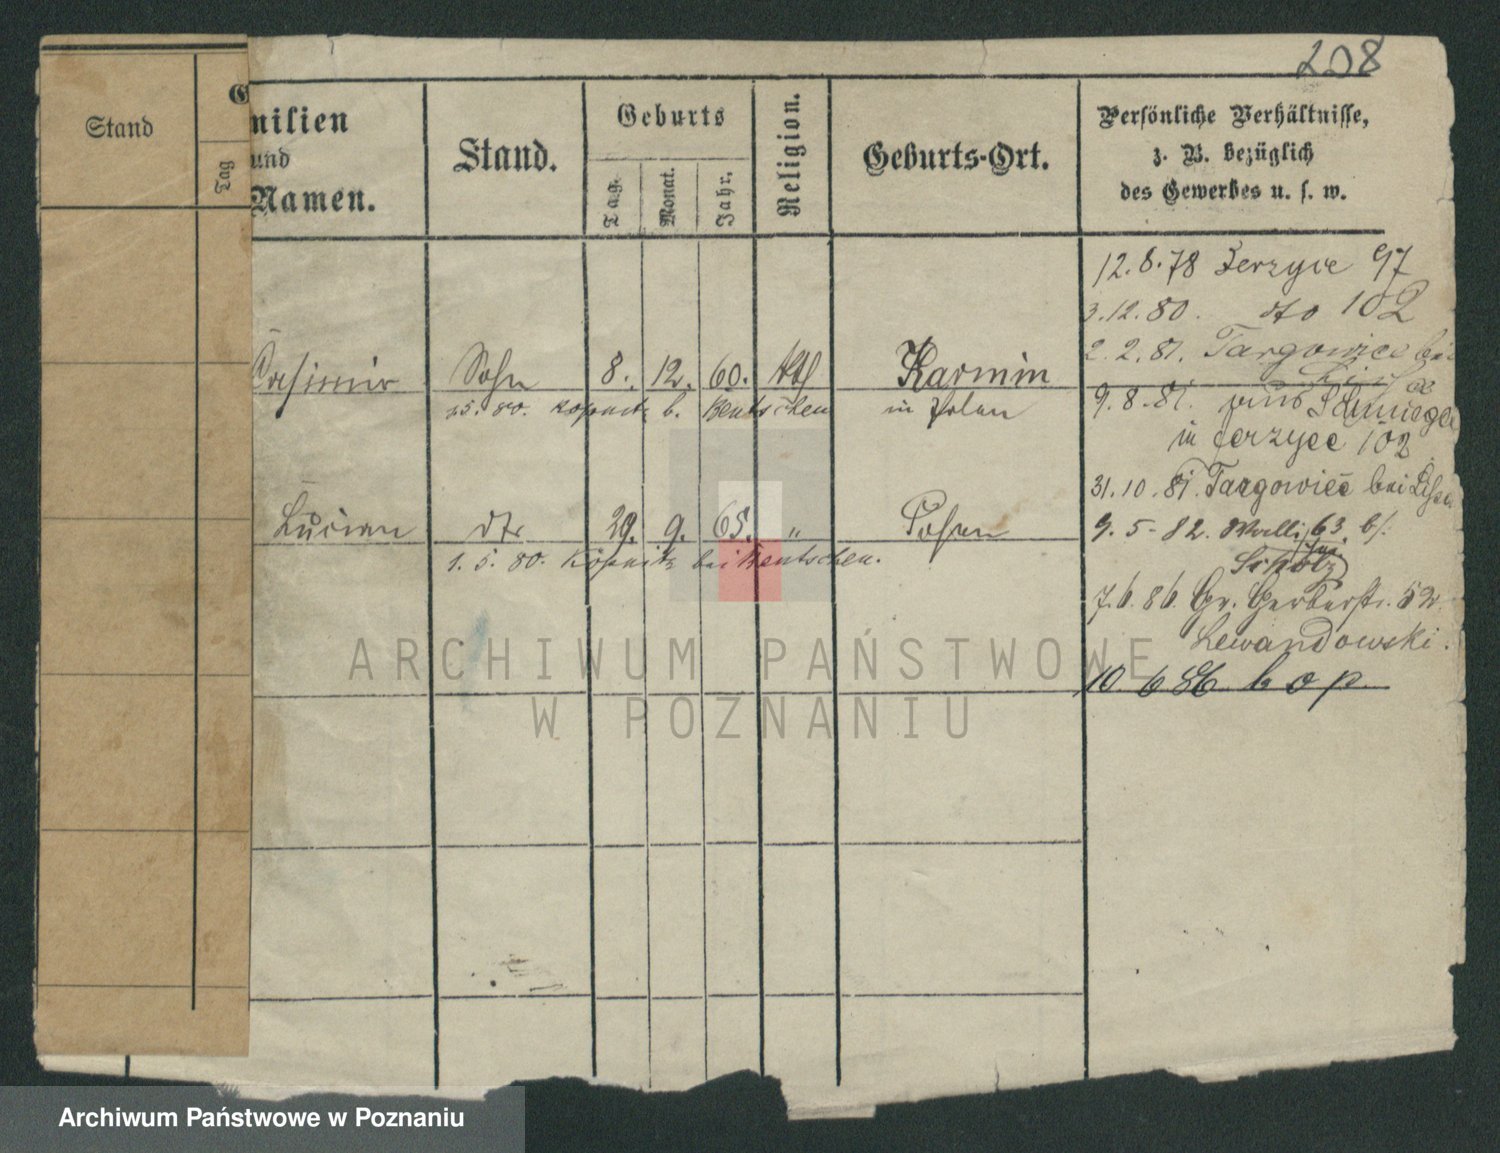 208
Stand
Tag
milien
und
Namen.
Stand.
Geburts
Tag.
Monat.
Jahr.
Religion.
Geburts-Ort.
Persönliche Verhältnisse,
z. B. bezüglich
des Gewerbes u. s. w.
12.8.78 Jerzyce 97
3.12.80. dto 102
2.2.81. Targowice bei
Casimir Sohn 8. 12. 60. kth Karmin
80. Köpnitz b. Bentschen in Polen
9.8.81. aus Schmiegel
in Jerzyce 102
31.10.81. Targowice bei
Lucian dto 29. 9. 65. " Posen
1.5.80. Köpnitz bei Bentschen.
9.5.82. Walli 63. b/.
Scholz
7.6.86. Gr. Gerberstr. 52.
Lewandowski.
10 6 86 b o p.
ARCHIWUM PAŃSTWOWE
W POZNANIU
Archiwum Państwowe w Poznaniu